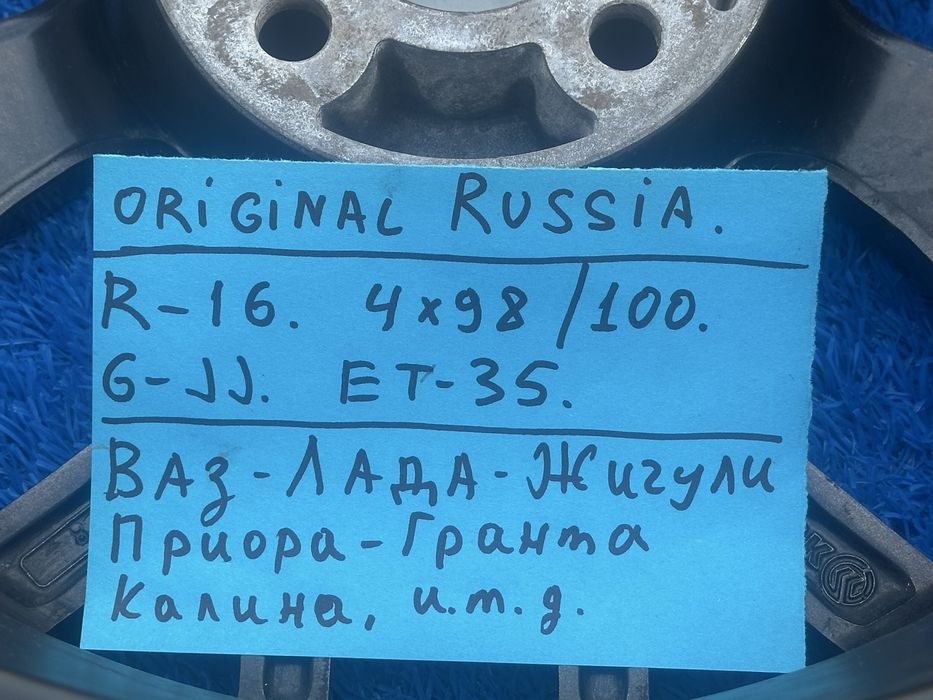 ORiGiNAL RUSSiA.
R-16. 4x98/100.
6-JJ. ET-35.
ВАЗ-ЛАДА-Жигули
Приора-Гранта
Калина, и.т.д.